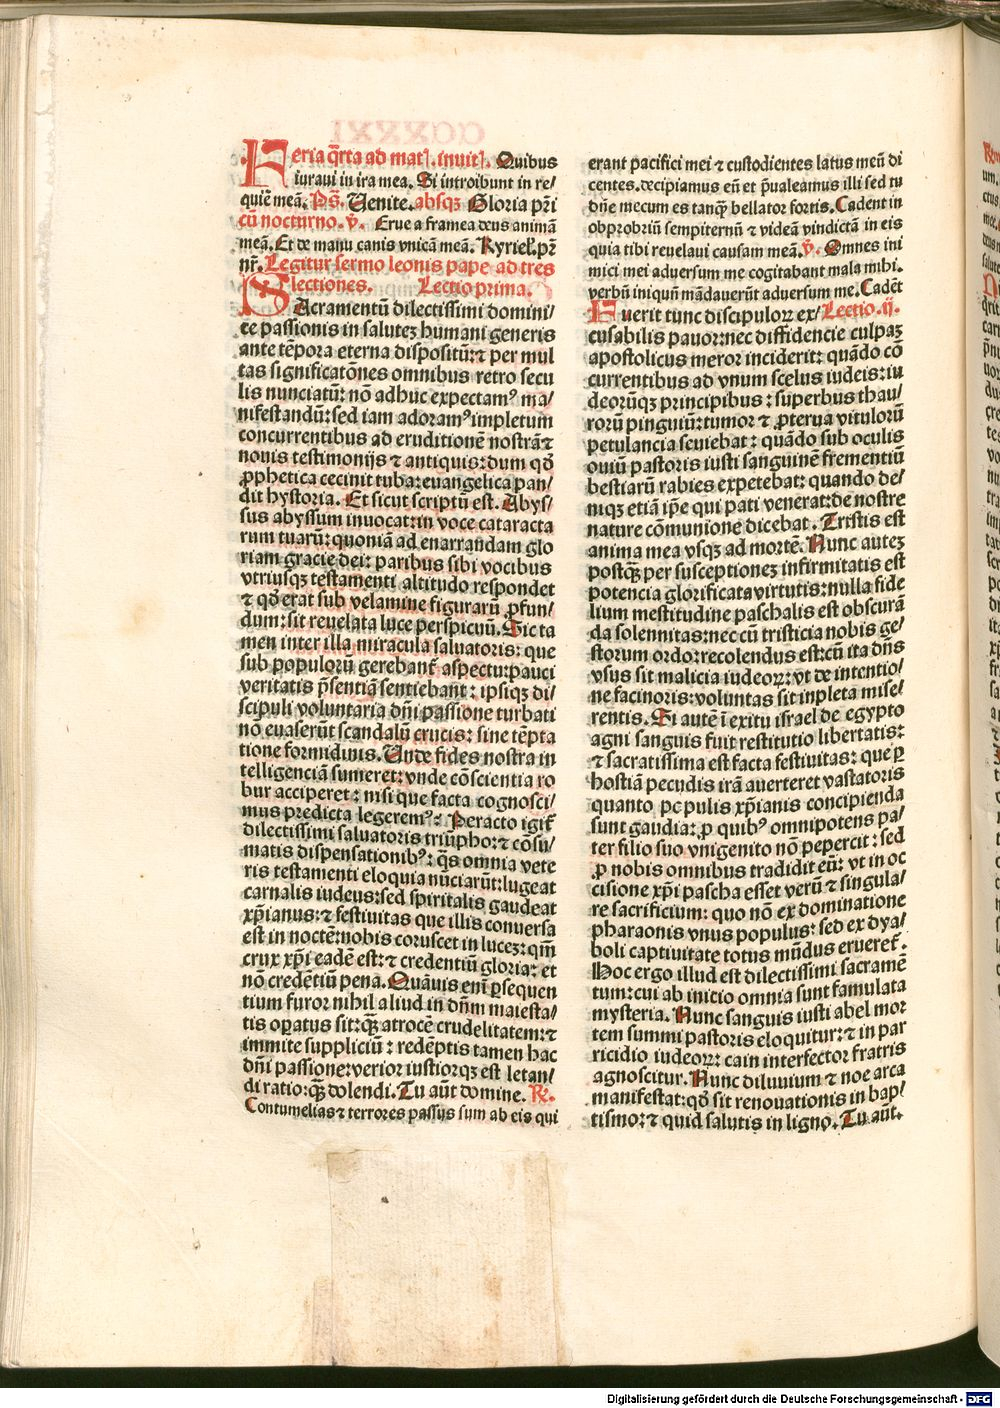 Feria q̄rta ad matꝭ. inuitꝭ. Quibus
iuraui in ira mea. Si introibunt in re/
quiē meā. Ps̄. Venite. absqꝫ Gloria pr̄i
cū nocturno. v̄. Erue a framea deus animā
meā. Et de manu canis vnicā meā. Kyriel. pr̄
nr̄. Legitur sermo leonis pape ad tres
lectiones. Lectio prima.
SAcramentū dilectissimi domini/
ce passionis in saluteꝫ humani generis
ante tēpora eterna dispositū: ⁊ per mul
tas significatōnes omnibus retro secu
lis nunciatū: nō adhuc expectamꝰ ma/
nifestandū: sed iam adoramꝰ impletum
concurrentibus ad eruditionē nostrā ⁊
nouis testimonijs ⁊ antiquis: dum qđ
ꝓphetica cecinit tuba: euangelica pan/
dit hystoria. Et sicut scriptū est. Abys/
sus abyssum inuocat: in voce cataracta
rum tuarū: quoniā ad enarrandam glo
riam gracie dei: paribus sibi vocibus
vtriusqꝫ testamenti altitudo respondet
⁊ qđ erat sub velamine figurarū ꝓfun/
dum: sit reuelata luce perspicuū. Sic ta
men inter illa miracula saluatoris: que
sub populorū gerebant᷑ aspectu: pauci
veritatis p̄sentiā sentiebant: ipsiqꝫ di/
scipuli voluntaria dn̄i passione turbati
nō euaserūt scandalū crucis: sine tēpta
tione formidinis. Unde fides nostra in
telligenciā sumeret: vnde cōscientia ro
bur acciperet: nisi que facta cognosci/
mus predicta legeremꝰ: Peracto igit᷑
dilectissimi saluatoris triūpho: ⁊ cōsu/
matis dispensationibꝰ: q̄s omnia vete
ris testamenti eloquia nūciarūt: lugeat
carnalis iudeus: sed spiritalis gaudeat
xp̄ianus: ⁊ festiuitas que illis conuersa
est in noctē: nobis coruscet in luceꝫ: qm̄
crux xp̄i eadē est: ⁊ credentiū gloria: et
nō credētiū pena. Quāuis eni ꝑsequen
tium furor nihil aliud in dn̄m maiesta/
tis oꝑatus sit: qꝫ atrocē crudelitatem: ⁊
immite suppliciū: redēptis tamen hac
dn̄i passione: verior iustiorqꝫ est letan/
di ratio: qꝫ dolendi. Tu aūt domine. R̄.
Contumelias ⁊ terrores passus sum ab eis qui
erant pacifici mei ⁊ custodientes latus meū di
centes. decipiamus eū et p̄ualeamus illi sed tu
dn̄e mecum es tanqꝫ bellator fortis. Cadent in
obprobriū sempiternū ⁊ videā vindictā in eis
quia tibi reuelaui causam meā. v̄. Omnes ini
mici mei aduersum me cogitabant mala mihi.
verbū iniquū mādauerūt aduersum me. Cadēt
Fuerit tunc discipuloꝝ ex/ Lectio. ij.
cusabilis pauor: nec diffidencie culpaꝫ
apostolicus meror inciderit: quādo cō
currentibus ad vnum scelus iudeis: iu
deorūqꝫ principibus: superbus thau/
rorū pinguiū: tumor ⁊ ꝓterua vitulorū
petulancia seuiebat: quādo sub oculis
ouiū pastoris iusti sanguinē frementiū
bestiarū rabies expetebat: quando de/
niqꝫ etiā ip̄e qui pati venerat: de nostre
nature cōmunione dicebat. Tristis est
anima mea vsqꝫ ad mortē. Nunc auteꝫ
postqꝫ per susceptioneꝫ infirmitatis est
potencia glorificata virtutis: nulla fide
lium mestitudine paschalis est obscurā
da solennitas: nec cū tristicia nobis ge/
storum ordo: recolendus est: cū ita dn̄s
vsus sit malicia iudeoꝝ: vt de intentio/
ne facinoris: voluntas sit inpleta mise/
rentis. Si autē ī exitu israel de egypto
agni sanguis fuit restitutio libertatis:
⁊ sacratissima est facta festiuitas: que ꝑ
hostiā pecudis irā auerteret vastatoris
quanto populis xp̄ianis concipienda
sunt gaudia: ꝓ quibꝰ omnipotens pa/
ter filio suo vnigenito nō pepercit: sed
ꝓ nobis omnibus tradidit eū: vt in oc
cisione xp̄i pascha esset verū ⁊ singula/
re sacrificium: quo nō ex dominatione
pharaonis vnus populus: sed ex dya/
boli captiuitate totus mūdus erueret᷑.
Hoc ergo illud est dilectissimi sacramē
tum: cui ab inicio omnia sunt famulata
mysteria. Nunc sanguis iusti abel mor
tem summi pastoris eloquitur: ⁊ in par
ricidio iudeoꝝ: cain interfector fratris
agnoscitur. Nunc diluuium ⁊ noe arca
manifestat: qđ sit renouationis in bap/
tismo: ⁊ quid salutis in ligno. Tu aūt.
Digitalisierung gefördert durch die Deutsche Forschungsgemeinschaft - DFG